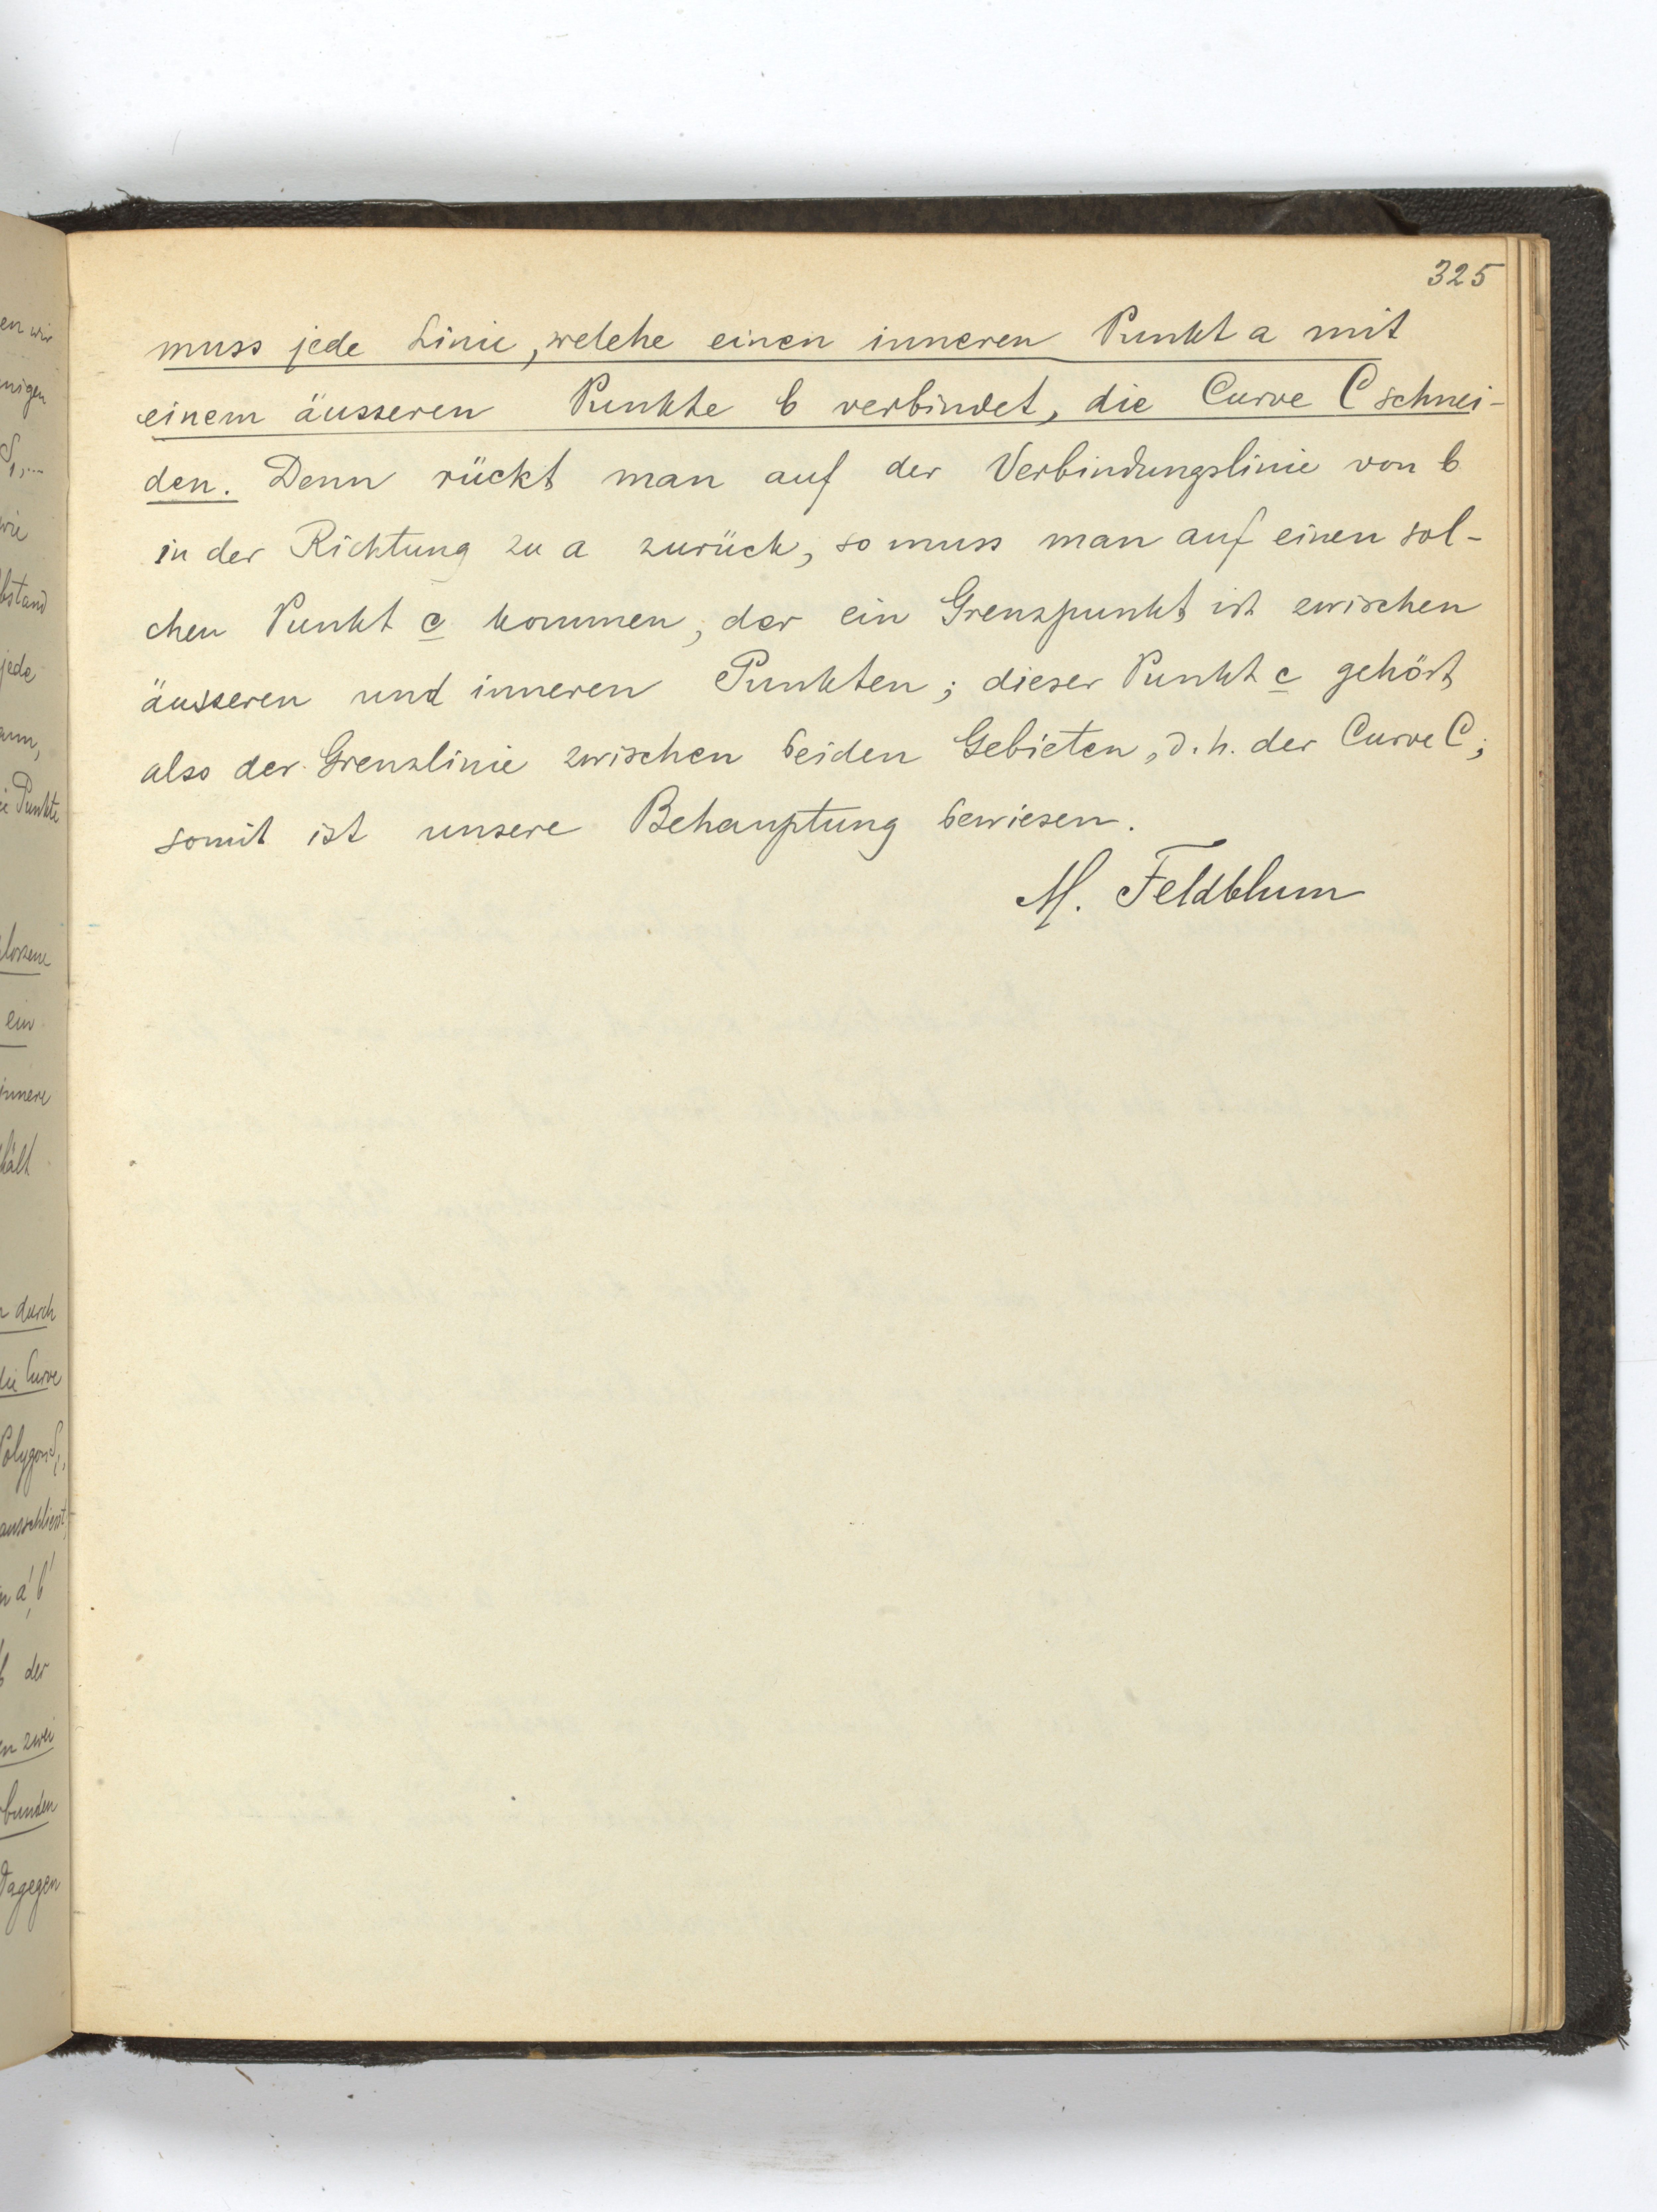 325
muss jede Linie, welche einen inneren Punkt a mit
einem äusseren Punkte b verbindet, die Curve C schnei-
den. Denn rückt man auf der Verbindungslinie von b
in der Richtung zu a zurück, so muss man auf einen sol-
chen Punkt c kommen, der ein Grenzpunkt ist zwischen
äusseren und inneren Punkten; dieser Punkt c gehört
also der Grenzlinie zwischen beiden Gebieten, d. h. der Curve C;
somit ist unsere Behauptung bewiesen.
M. Feldblum
en wir
nigen
S₁,...
wie
bstand
jede
ann,
Punkte
ein
innere
hält
durch
die Curve
Polygon S₁,
ausschliesst,
a', b'
b der
en zwei
bunden
Dagegen